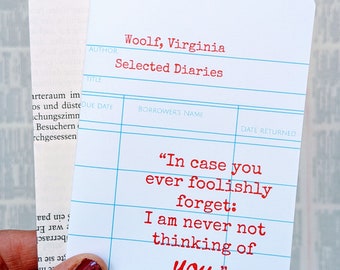 Woolf, Virginia
AUTHOR
Selected Diaries
TITLE
DUE DATE BORROWER'S NAME DATE RETURNED
"In case you
ever foolishly
forget:
I am never not
thinking of
you."
arteraum im
os und düster
uchungszimm
Besuchern d
rchgesessen